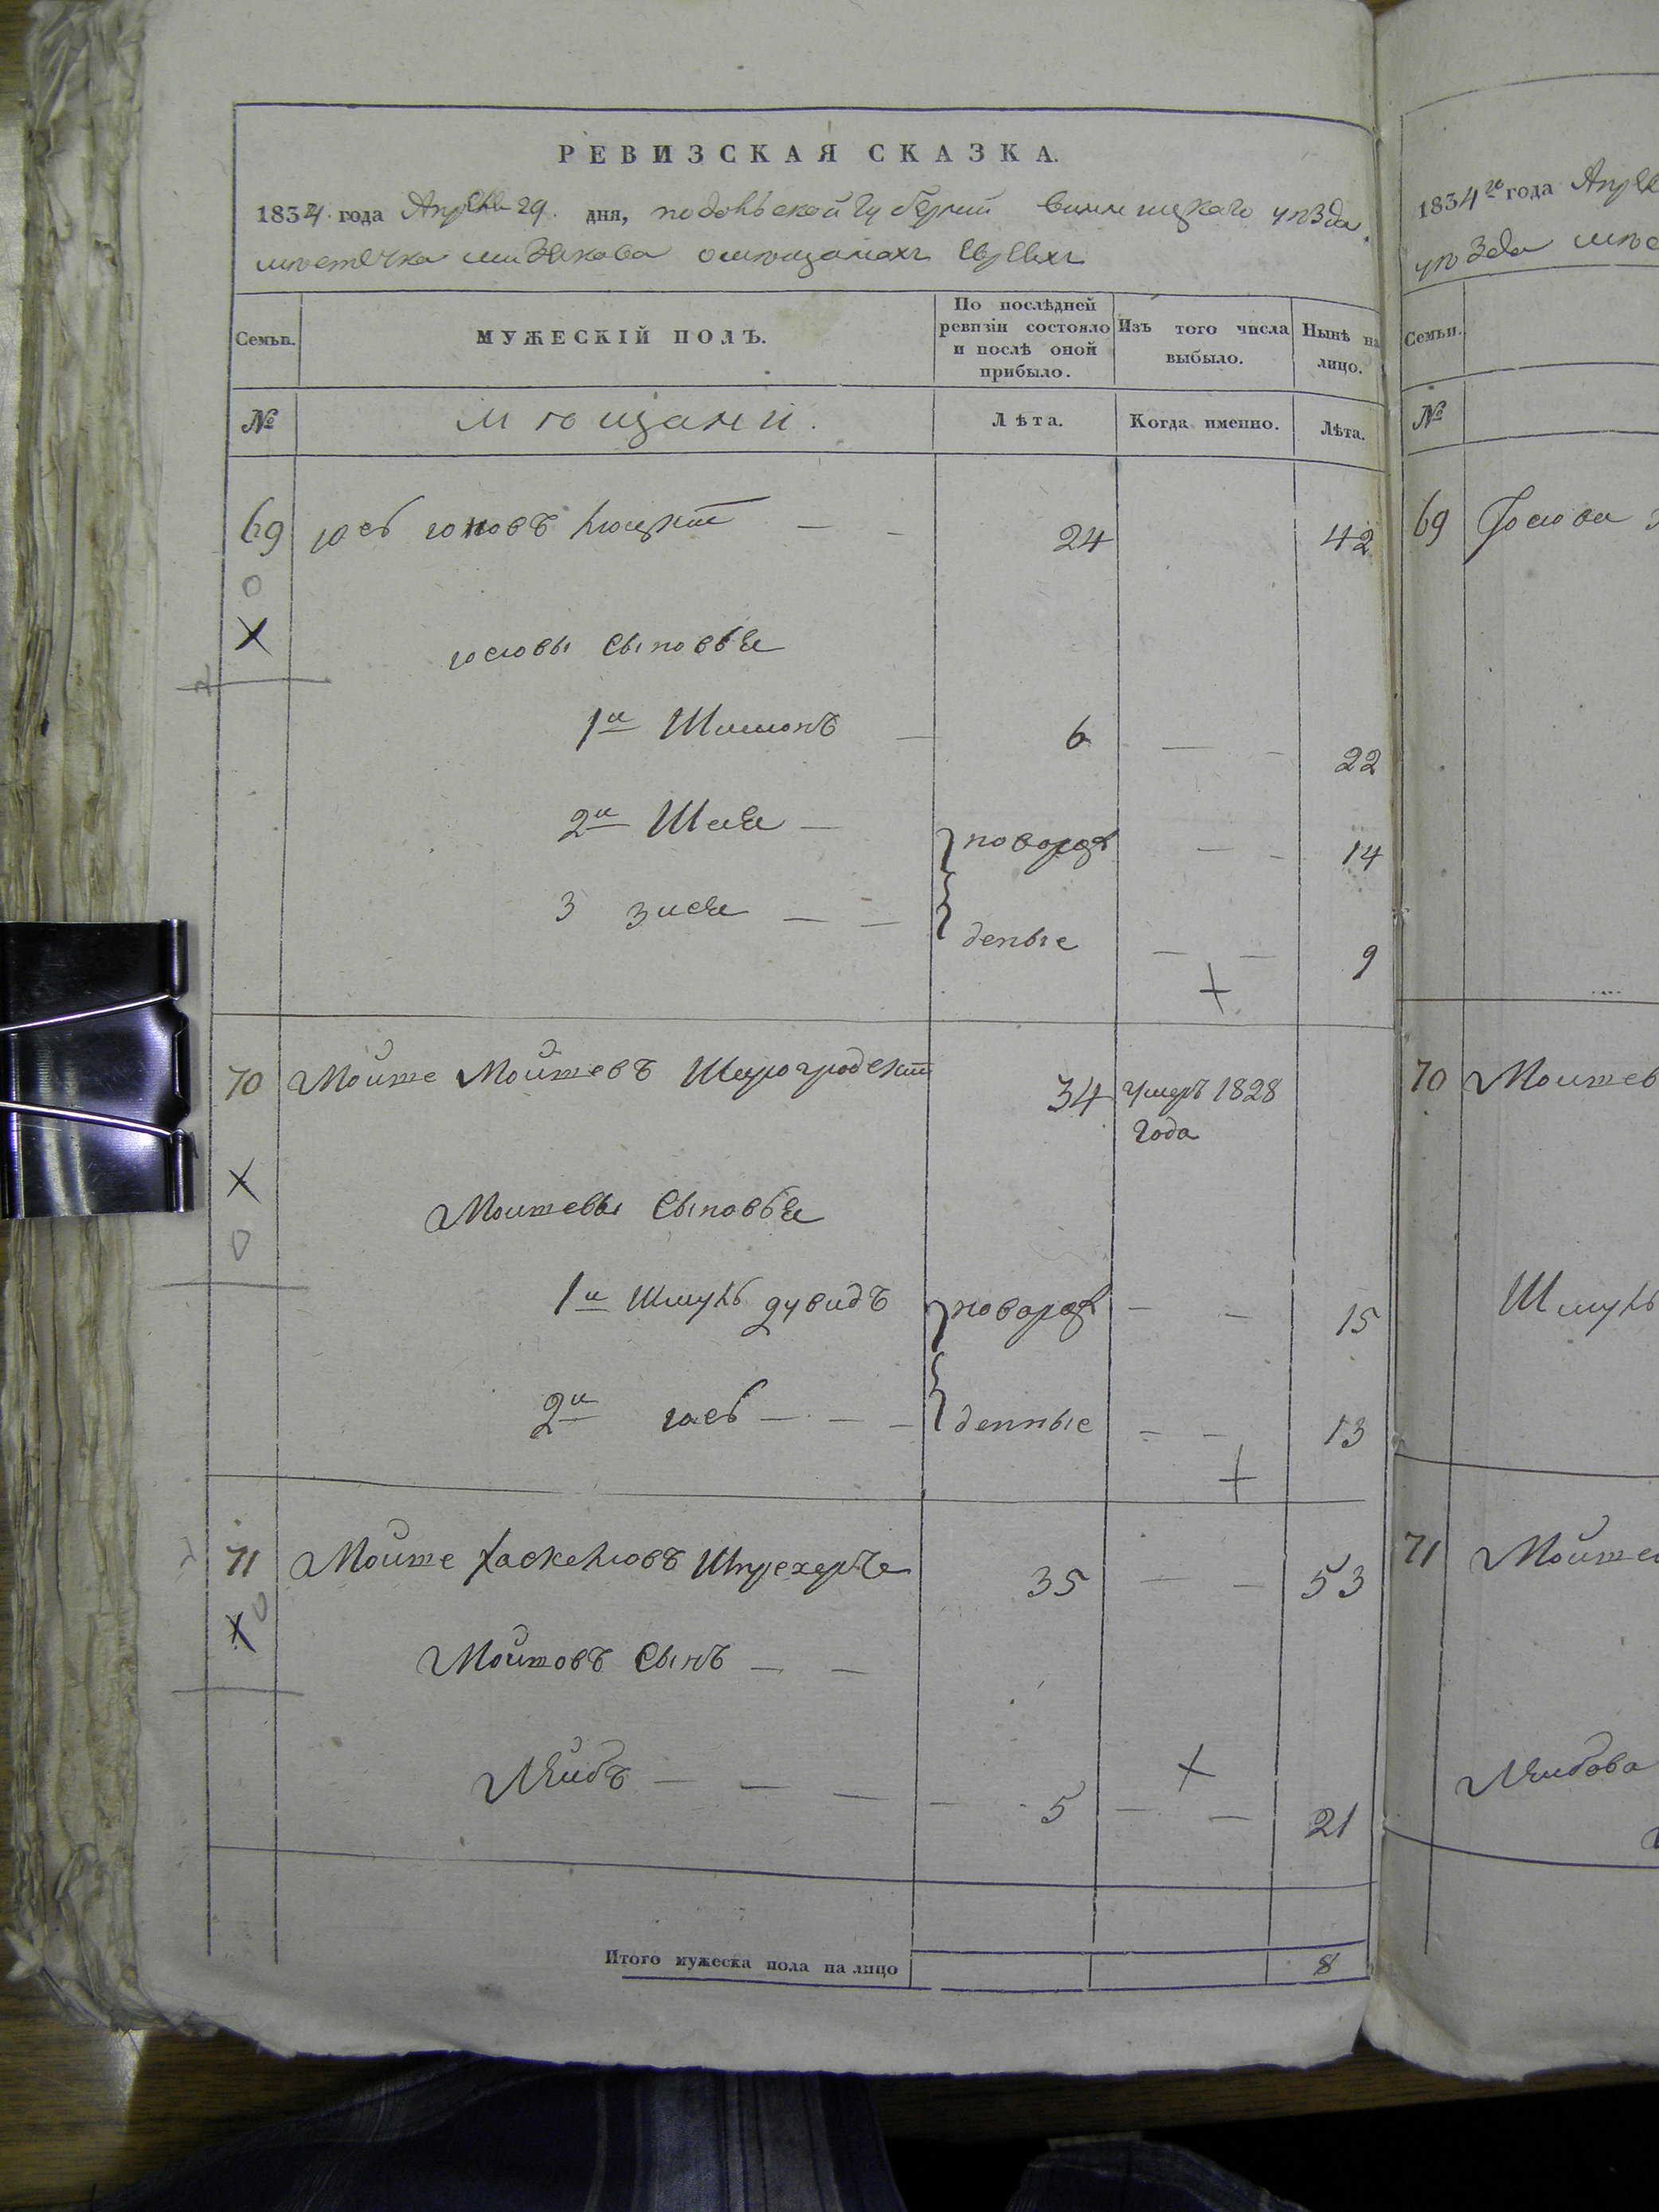 РЕВИЗСКАЯ СКАЗКА.
1834. года Апреля 29. дня, подольской губернии винницкаго уѣзда
мѣстечка о мѣщанахъ Евреяхъ
Семьи.
МУЖЕСКІЙ ПОЛЪ.
По послѣдней ревизіи состояло и послѣ оной прибыло.
Изъ того числа выбыло.
Нынѣ на лицо.
№
мѣщани.
Лѣта.
Когда именно.
Лѣта.
69 юсь 24 42
юсiовы Сыновья
1й Шимонъ 6 22
2й Шая новорож 14
3 зися деные 9
70 Мойше Мойшевъ Шарогродскій 34 умеръ 1828
года
Моишевы Сыновья
1й Шмуль дувидъ новорож 15
2й юсь денные 13
71 Мойше Хаскелiовъ 35 53
Мойшовъ Сынъ
Лейбъ 5 21
Итого мужеска пола на лицо 8
1834го года
уѣзда
Семьи.
№
69 Юсiова
70 Моишев
Шмуль
71 Мойше
Лейбова